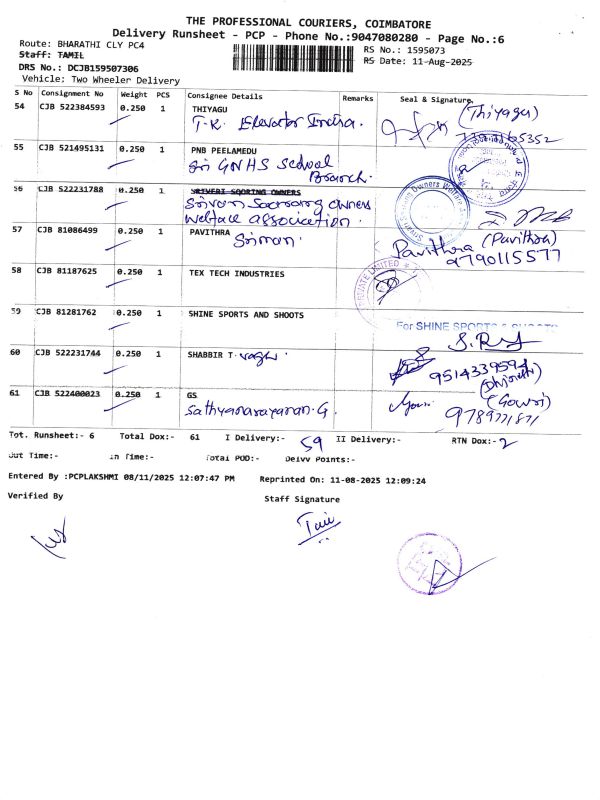 THE PROFESSIONAL COURIERS, COIMBATORE
Delivery Runsheet - PCP - Phone No.:9047080280 - Page No.:6
Route: BHARATHI CLY PC4 RS No.: 1595073
Staff: TAMIL RS Date: 11-Aug-2025
DRS No.: DCJB159507306
Vehicle: Two Wheeler Delivery
S No Consignment No Weight PCS Consignee Details Remarks Seal & Signature
54 CJB 522384593 0.250 1 THIYAGU (Thiyagu)
T.K. Elevator India.
55 CJB 521495131 0.250 1 PNB PEELAMEDU
Sri GNHS School
Branch.
56 CJB 522231788 0.250 1 SRIVERI SQORING OWNERS
Owners
Welface association.
57 CJB 81086499 0.250 1 PAVITHRA Pavithra (Pavithra)
9790115577
58 CJB 81187625 0.250 1 TEX TECH INDUSTRIES
PRIVATE LIMITED
59 CJB 81281762 0.250 1 SHINE SPORTS AND SHOOTS
For SHINE SPORTS & SHOOTS
60 CJB 522231744 0.250 1 SHABBIR T.
9514339594
61 CJB 522400023 0.250 1 GS (Gowri)
Sathyanarayanan.G. Gowri
Tot. Runsheet:- 6 Total Dox:- 61 I Delivery:- 59 II Delivery:- RTN Dox:- 2
Out Time:- In Time:- Total POD:- Delvv Points:-
Entered By :PCPLAKSHMI 08/11/2025 12:07:47 PM Reprinted On: 11-08-2025 12:09:24
Verified By Staff Signature